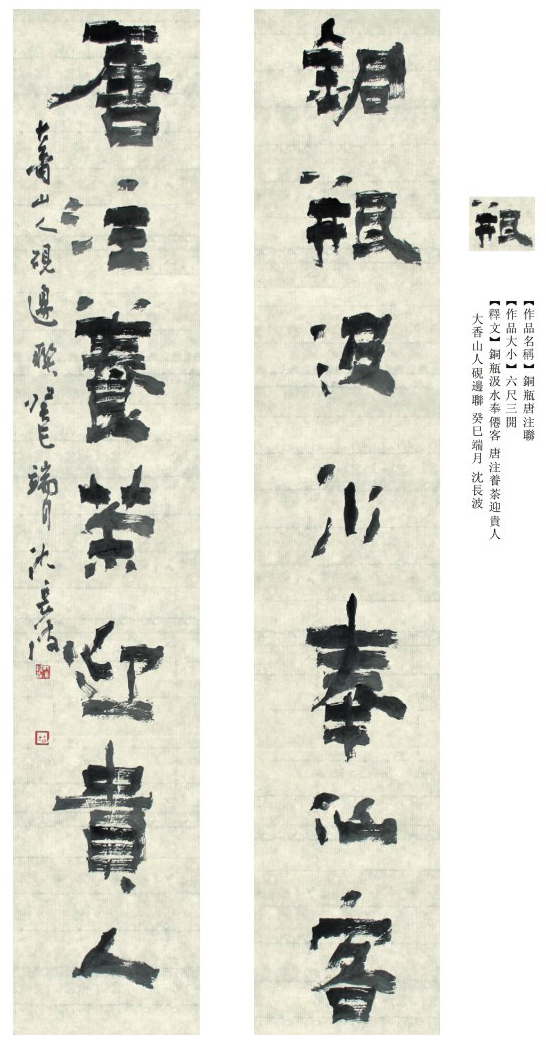 瓶
【作品名稱】銅瓶唐注聯
【作品大小】六尺三開
【釋文】銅瓶汲水奉僊客 唐注養茶迎貴人
大香山人硯邊聯 癸巳端月 沈長波
銅瓶汲水奉仙客
唐注養茶迎貴人
大香山人硯邊聯癸巳端月沈長波